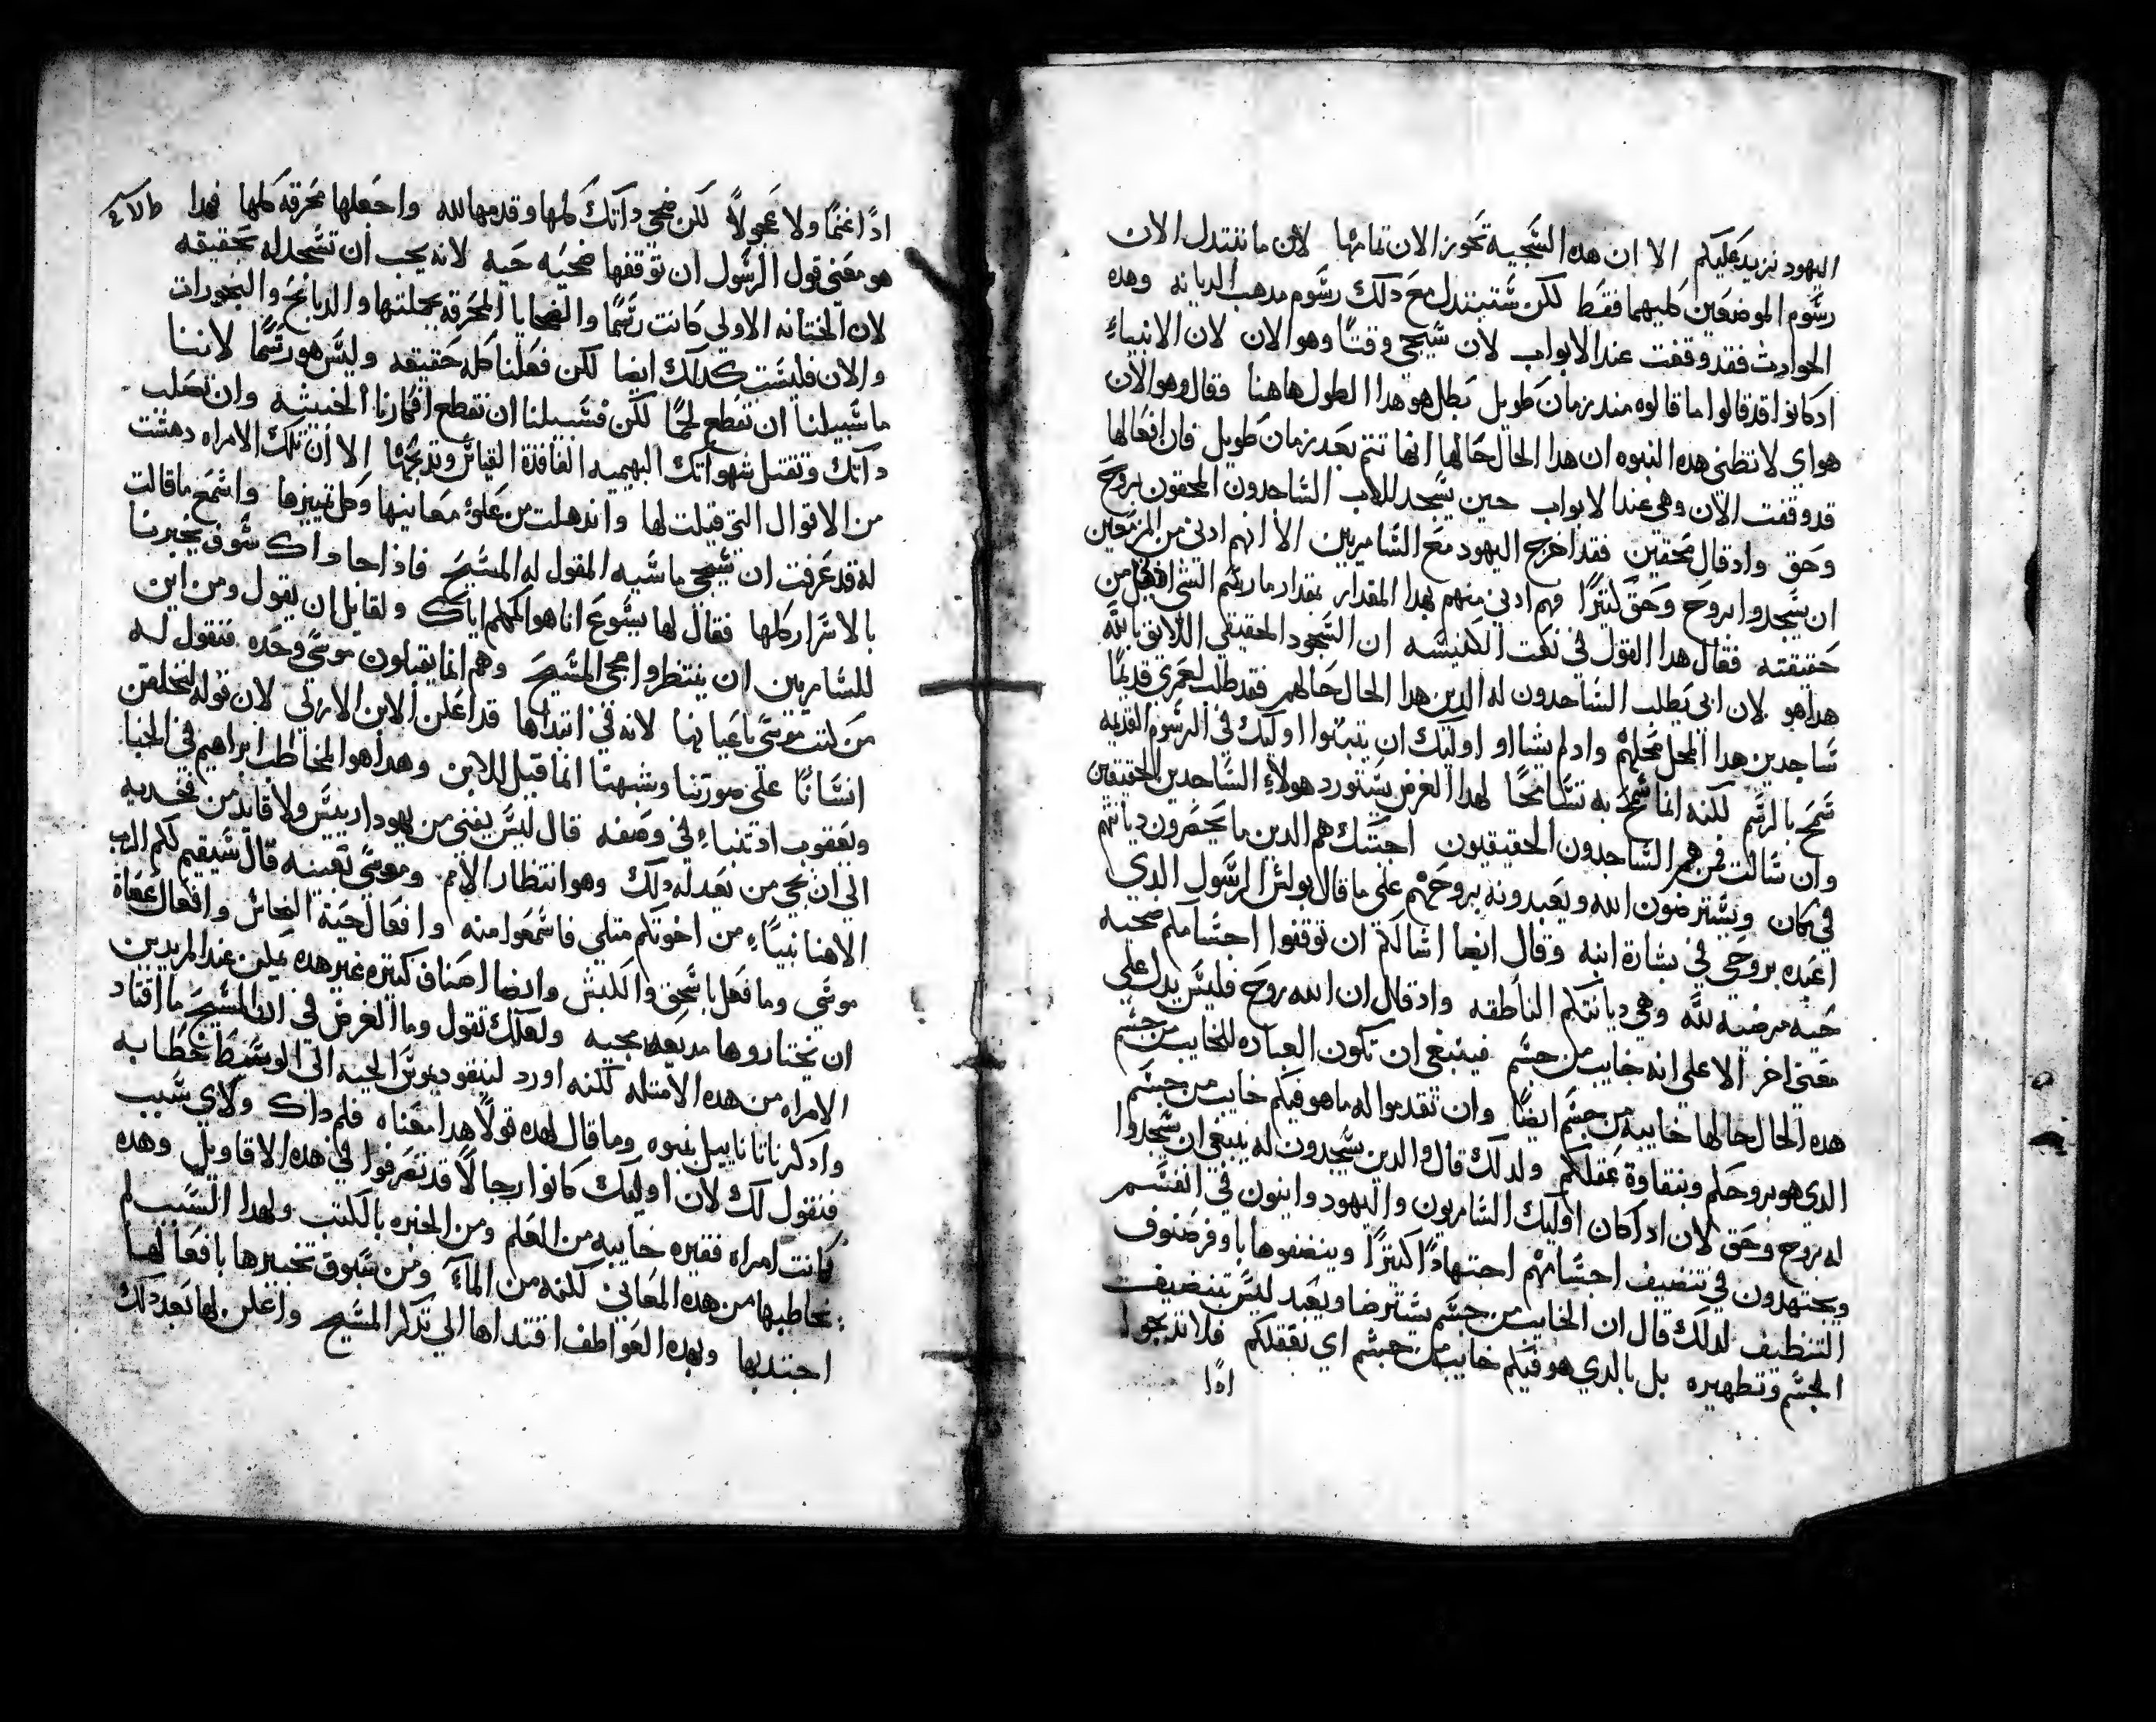 اليهود نزيد عليكم الا ان هذه السجيه تحوز الان تمامها لان ما تتبدل الان
رسوم الموضعين كليهما فقط لكن ستتبدل مع دلك رسوم مدهب الديانه وهده
الحوادث فقد وقفت عند الابواب لان سيجي وقتًا وهو الان لان الانبياء
ادكانوا قد قالوا ما قالوه مند زمان طويل بطل هو هدا الطول هاهنا فقال وهو الان
هو اي لا تظني هده النبوه ان هدا الحال حالها انها تتم بعد زمان طويل فان افعالها
قد وقفت الان وهي عند الابواب حين يسجد للاب الساجدون المحقون بروح
وحق واد قال محقين فقد اخرج اليهود مع السامريين الا انهم ادني من المزمعين
ان يسجدوا بروح وحق كثيرًا فهم ادني منهم بهدا المقدار بمقدار ما رسم الشي ادني من
حقيقته فقال هدا القول في نعت الكنيسه ان السجود الحقيقي اللايق بالله
هدا هو لان ابي يطلب الساجدون له الدين هدا الحال حالهم فقد طلب لعمري قديمًا
ساجدين هدا المحل محلهم واد لم يشااو اوليك ان يثبتوا اوليك في الرسوم القديمه
سمح بالرسم لكنه انما سمح به تسامحًا لهدا الغرض ستورد هولاء الساجدين الحقيقين
وان سالت فمن هم الساجدون الحقيقيون اجبتك هم الدين ما يحصرون ديانتهم
في مكان ويسترضون الله ويعبدونه بروحهم علي ما قال بولس الرسول الدي
اعبده بروحي في بشارة ابنه وقال ايضا اسالكم ان توقفوا اجسامكم ضحيه
حيه مرضيه لله وهي ديانتكم الناطقه واد قال ان الله روح فليس يدل علي
معني اخر الا علي انه خايب من جسم فينبغي ان تكون العباده للخايب من جسم
هده الحال حالها خاييه من جسم ايضًا وان تقدموا له ما هو فيكم خايب من جسم
الدي هو بروحكم وبنقاوة عقلكم ولدلك قال والدين يسجدون له ينبغي ان يسجدوا
له بروح وحق لان اد كان اوليك السامريون واليهود وانون في انفسهم
ويجتهدون في تنضيف اجسامهم اجتهادًا كثيرًا وينضفوها باوفر صنوف
التنظيف لدلك قال ان الخايب من جسم يسترضا ويعبد ليس بتنضيف
الجسم وتطهيره بل بالدي هو فيكم خايب من جسم اي بعقلكم فلا تدبحوا
ادًا
ادًا غنمًا ولا عجولاً لكن ضحي داتك كلها وقدمها لله واجعلها محرقه كلها فهدا
هو معني قول الرسول ان توقفها ضحيه حيه لانه يجب ان تسجد له بحقيقه
لان الختانه الاولي كانت رسمًا والضحايا المحرقه بجملتها والدبايح والبخورات
والان فليست كدلك ايضا لكن فعلنا كله حقيقه وليس هو رسمًا لاننا
ما سبيلنا ان نقطع لحمًا لكن فسبيلنا ان نقطع افكارنا الخبيثه وان تصلب
داتك وتقتل شهواتك البهيميه الفاقدة القياس وتدبحها الا ان تلك الامراه دهشت
من الاقوال التي قيلت لها واندهلت من علو معانيها وكل تمييزها واسمع ما قالت
له قد عرفت ان سيجي ماسيه المقول له المسيح فاذا جا داك سوف يخبرنا
بالاسرار كلها فقال لها يسوع انا هو المكلم اياك ولقايل ان يقول ومن اين
للسامريين ان ينتظروا مجي المسيح وهم انما يقبلون موسي وحده فنقول له
من كتب موسي باعيانها لانه في ابتداها قد اعلن الابن الازلي لان قوله لنخلقن
انسانًا علي صورتنا وشبهنا انما قيل للابن وهدا هو المخاطب ابراهيم في الخبا
ويعقوب اد تنباء في وصفه قال ليس يفني من يهودا رييس ولا قايد من فخديه
الي ان يجي من يعد له دلك وهو انتظار الامم وموسي بعينه قال سيقيم لكم الرب
الاهنا نبيًاء من اخوتكم مثلي فاسمعوا منه وافعال حية النحاس وافعال عصاة
موسي وما فعل باسحق والكبش وايضا اصناف كثيره غير هده يمكن عند المريدين
ان يختاروها مديعه مجيه ولعلك تقول وما الغرض في ان المسيح ما اقتاد
الامراه من هده الامثله لكنه اورد لنيقوديموس الحيه الي الوسط خطابه
وادكر ناتاناييل نبوه وما قال لهده قولاً هدا معناه فلم داك ولاي سبب
فنقول لك لان اوليك كانوا رجالاً قد تصرفوا في هده الاقاويل وهده
كانت امراه فقيره خاييه من العلم ومن الخبره بالكتب ولهدا السبب لم
يخاطبها من هده المعاني لكنه من المآء ومن سبوق تخبيرها بافعالها
اجتدبها وبهده العواطف اقتداها الي تدكر المسيح واعلن لها بعد دلك